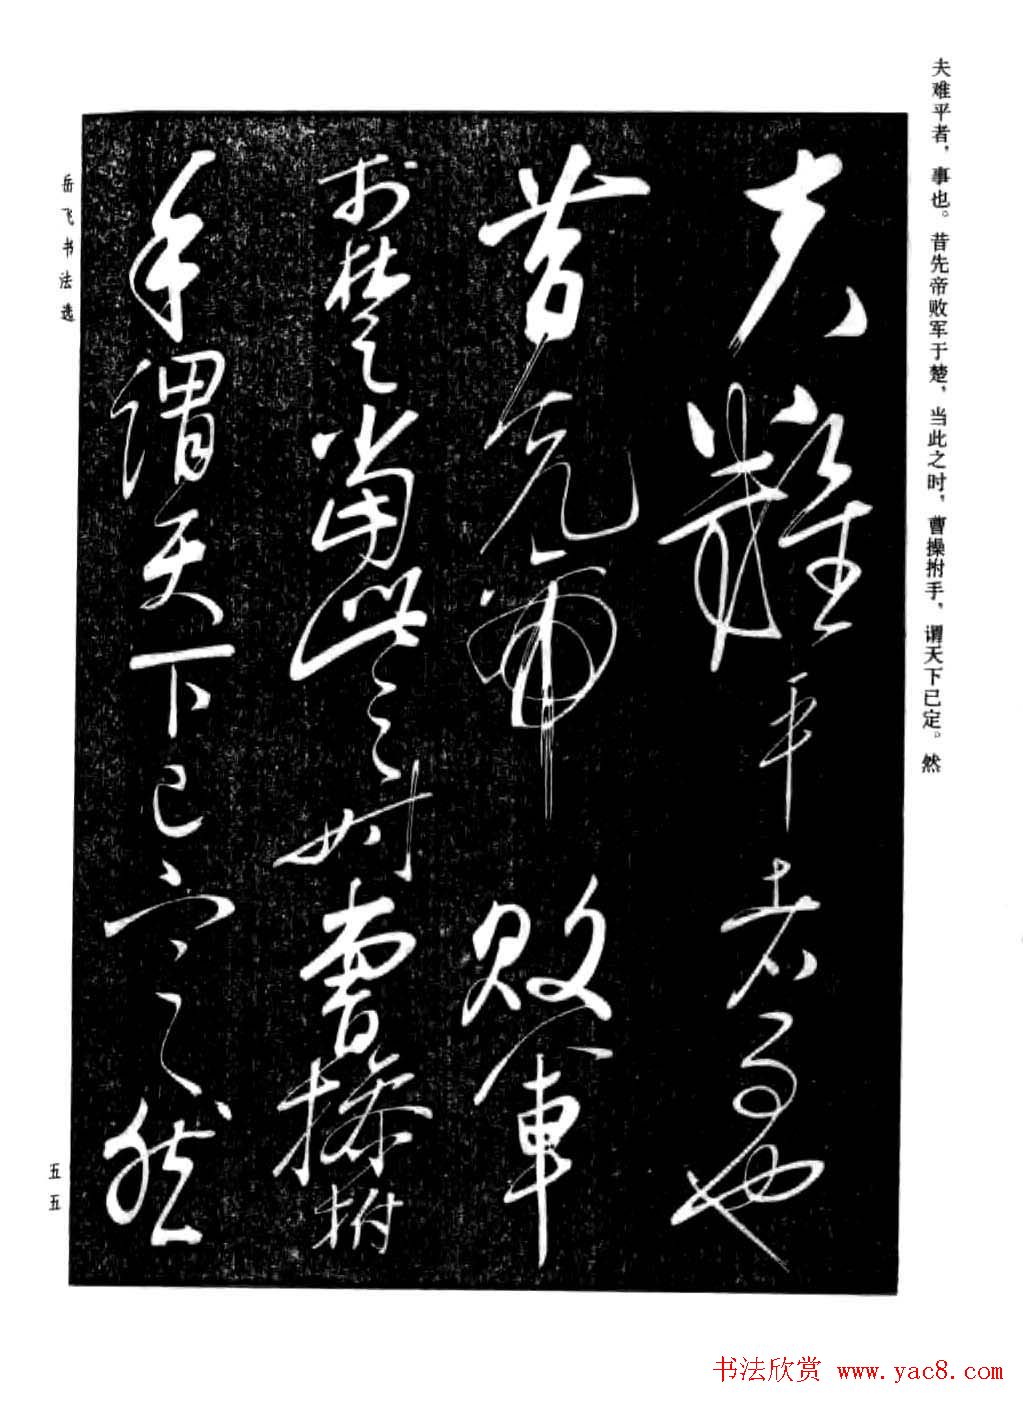 夫难平者，事也。昔先帝败军于楚，当此之时，曹操拊手，谓天下已定。然
夫難平者事也
昔先帝敗軍
於楚當此之时曹操拊
手謂天下已定然
岳飞书法选
五五
书法欣赏 www.yac8.com